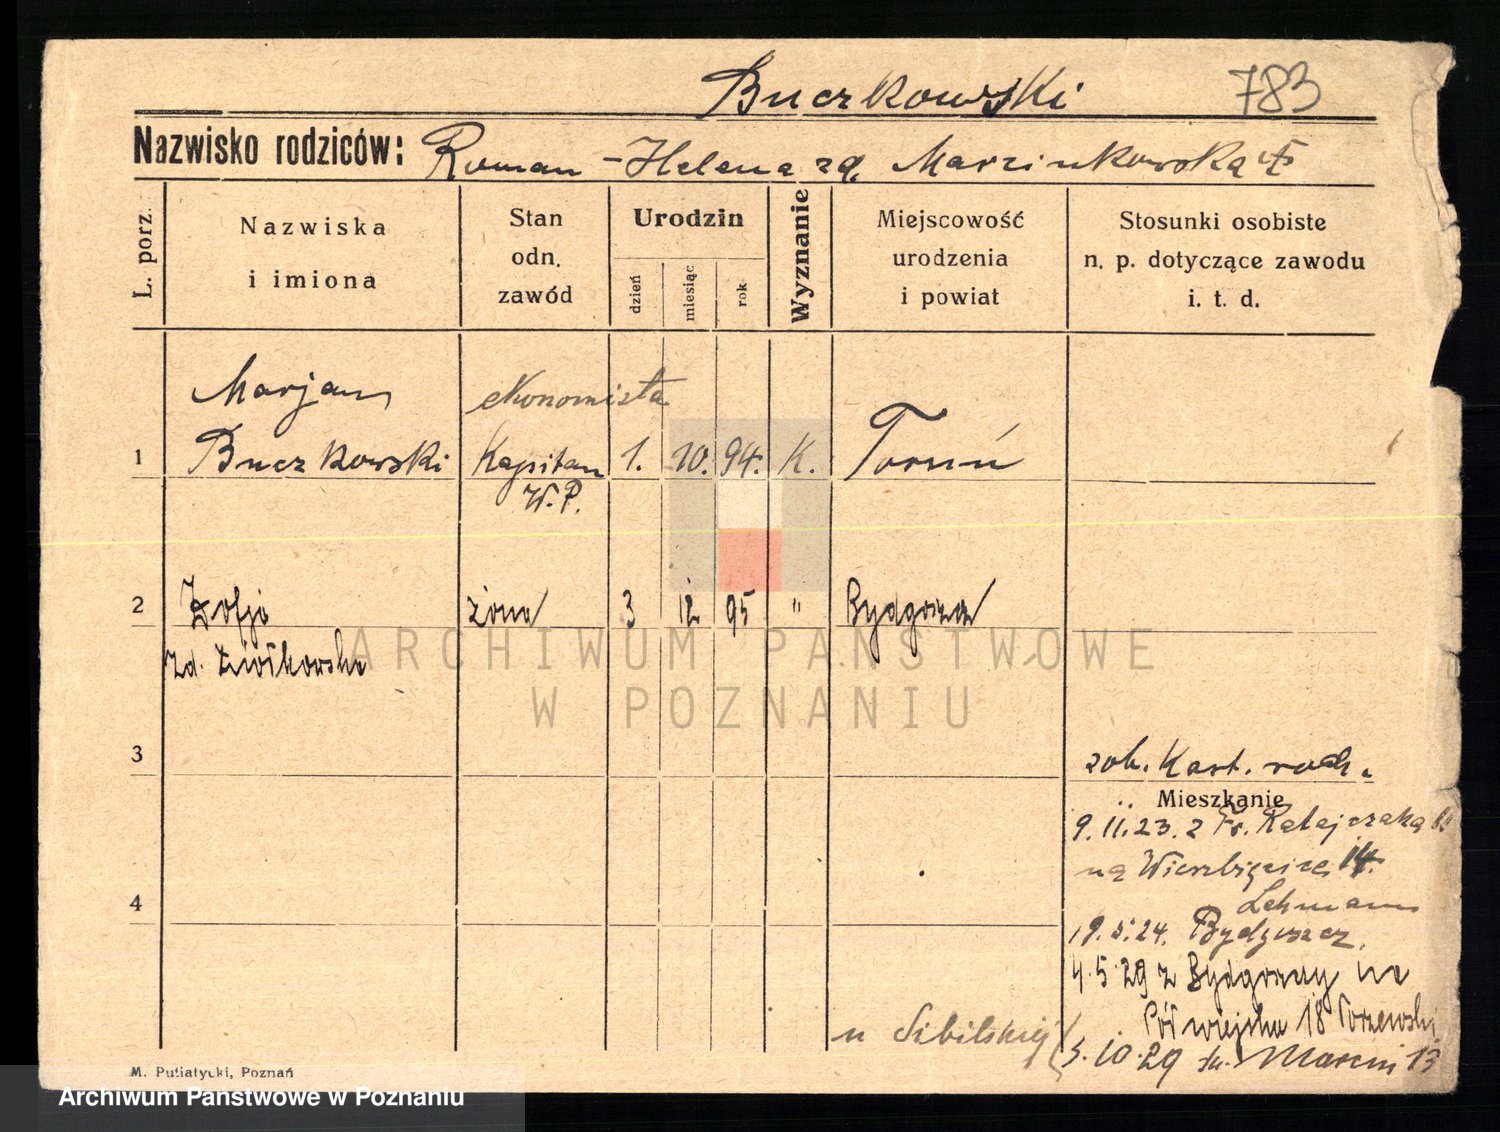 Buczkowski 783
Nazwisko rodziców: Roman - Helena zd. Marcinkowska
L. porz.
Nazwiska
i imiona
Stan
odn.
zawód
Urodzin
dzień
miesiąc
rok
Wyznanie
Miejscowość
urodzenia
i powiat
Stosunki osobiste
n. p. dotyczące zawodu
i. t. d.
Marjan ekonomista
1 Buczkowski Kapitan 1. 10. 94. K. Toruń
W.P.
2 Zofja żona 3 12 95 " Bydgoszcz
zd. Ziółkowska
ARCHIWUM PAŃSTWOWE
W POZNANIU
3
zob. Kart. rodz.
Mieszkanie
9.II.23. z Fr. Ratajczaka
na Wierzbięcice 14.
4
Lehmann
19.5.24. Bydgoszcz.
4.5.29 z Bydgoszczy na
Półwiejska 18
u Sibilskiej 5.10.29 św. Marcin 13
M. Putiatycki, Poznań
Archiwum Państwowe w Poznaniu